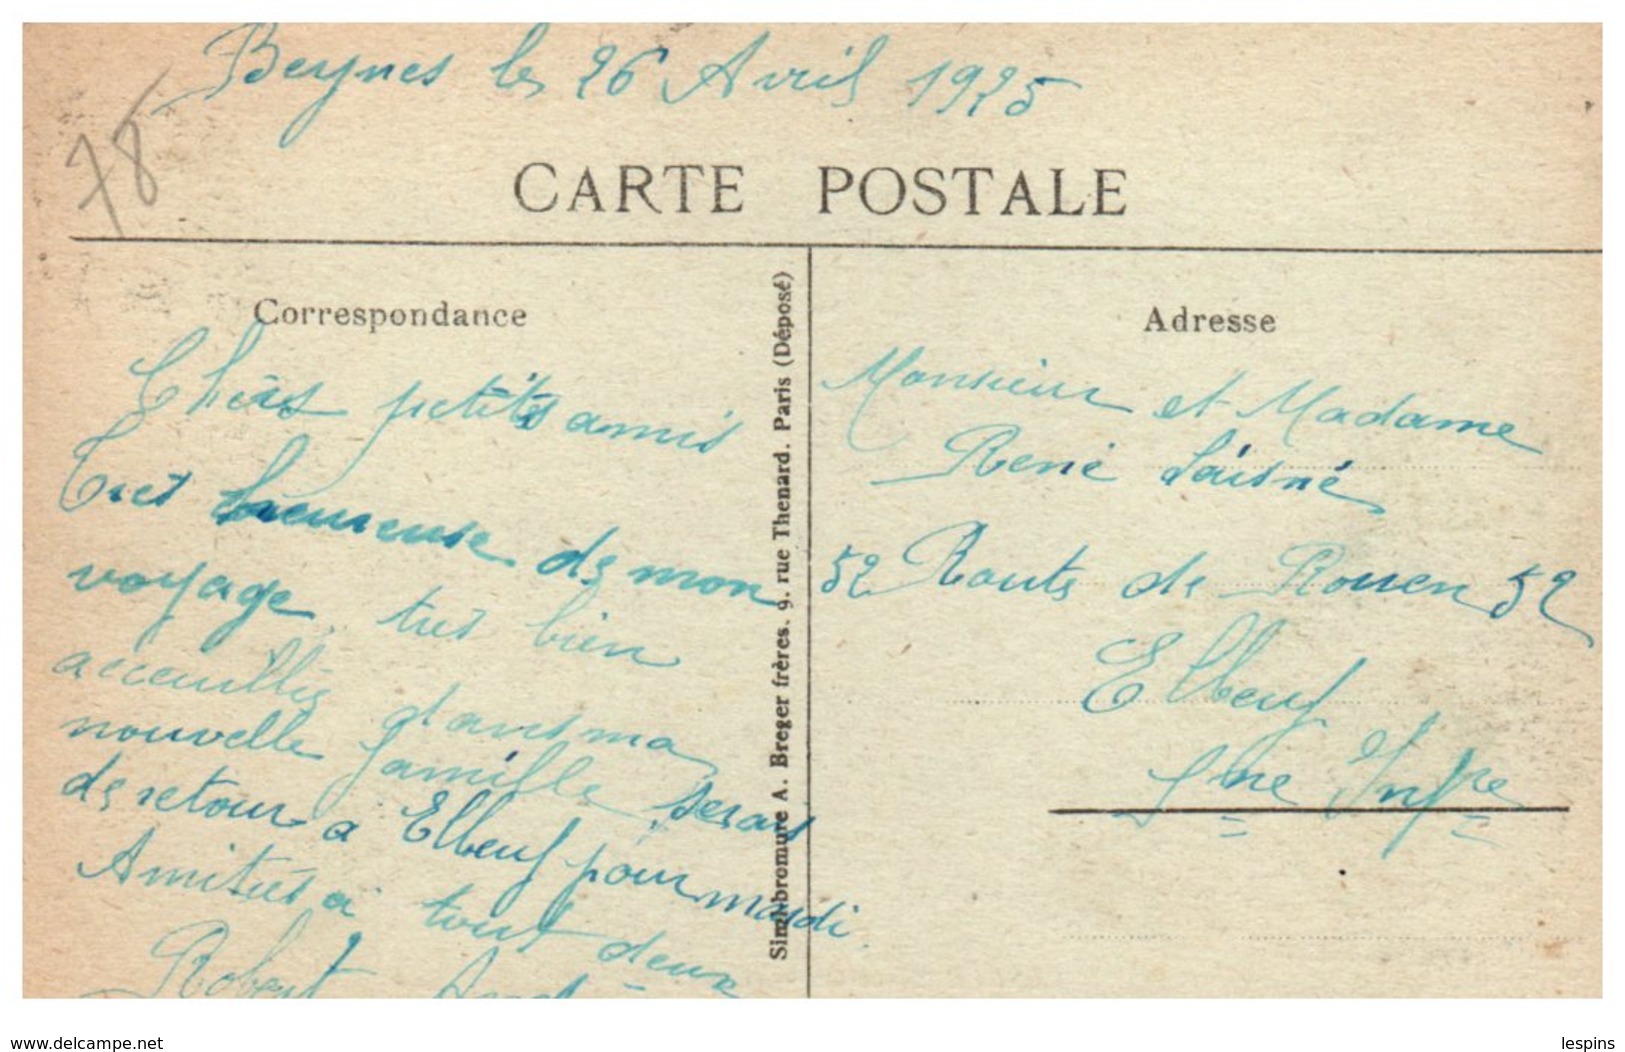 Beynes le 26 Avril 1925
78
CARTE POSTALE
Correspondance
Chers petits amis
Tres heureuse de mon
voyage tres bien
acceuillis dans ma
nouvelle famille serais
de retour a Elbeuf pour mardi
Amities a tout deux
Robert
Simili-bromure A. Breger frères. 9. rue Thenard. Paris (Déposé)
Adresse
Monsieur et Madame
René Laisné
52 Route de Rouen 52
Elbeuf
Sne Infre
www.delcampe.net
lespins